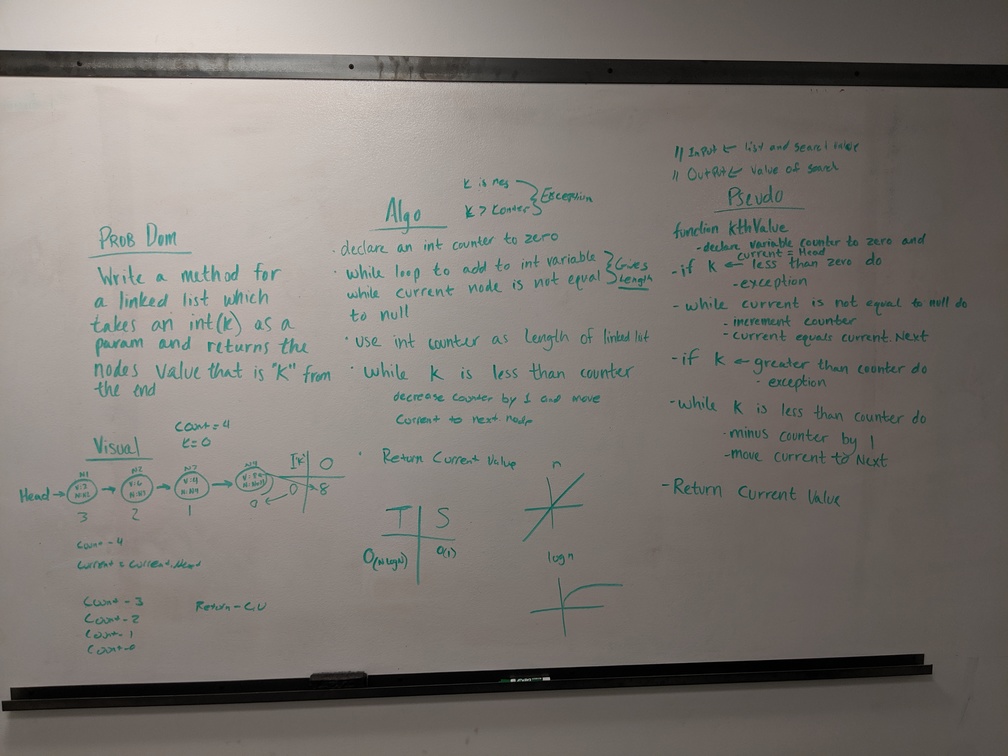 PROB Dom
Write a method for
a linked list which
takes an int(k) as a
param and returns the
nodes value that is "k" from
the end
Visual
Count = 4
K=0
Head
N1
N2
3
2
1
0
[K]
0
0
8
Count - 4
Current = Current.Head
Count - 3
Count - 2
Count - 1
Count - 0
Return - C.V
K is neg
K > Counter
Exception
Algo
· declare an int counter to zero
· while loop to add to int variable
while current node is not equal
to null
Gives
Length
· use int counter as length of linked list
· while K is less than counter
decrease counter by 1 and move
Current to next node
· Return Current Value
T
S
O(N log N)
O(1)
n
log n
// InPut ← list and search value
// OutPut ← Value of search
Pseudo
function kthValue
- declare variable counter to zero and
current = Head
- if K ← less than zero do
- exception
- while current is not equal to null do
- increment counter
- current equals current.Next
- if K ← greater than counter do
· exception
- while K is less than counter do
- minus counter by 1
- move current to Next
- Return Current Value